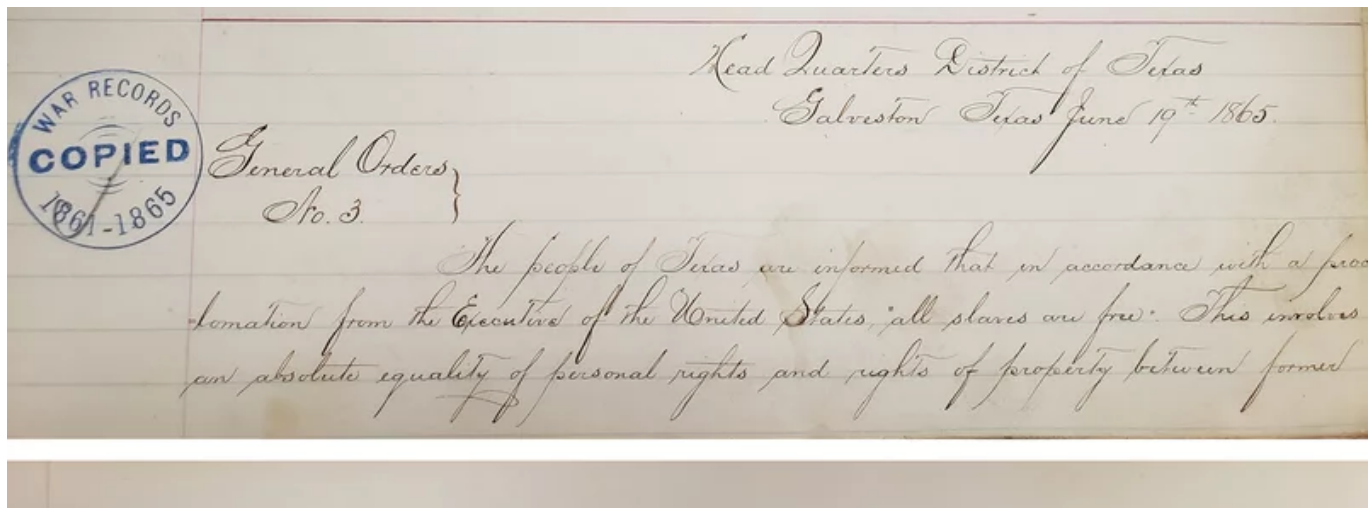 Head Quarters District of Texas
Galveston Texas June 19th 1865.
WAR RECORDS
COPIED
1861-1865
General Orders
No. 3.
The people of Texas are informed that in accordance with a proc
lamation from the Executive of the United States, "all slaves are free". This involves
an absolute equality of personal rights and rights of property between former